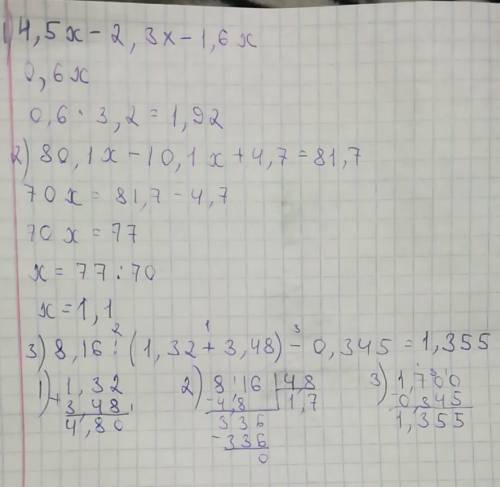 1) 4,5x - 2,3x - 1,6x
0,6x
0,6 · 3,2 = 1,92
2) 80,1x - 10,1x + 4,7 = 81,7
70x = 81,7 - 4,7
70x = 77
x = 77 : 70
x = 1,1
2 1 3
3) 8,16 : (1,32 + 3,48) - 0,345 = 1,355
1) 1,32 2) 8,16 | 4,8 3) 1,700
+ 3,48 - 4,8 | 1,7 - 0,345
4,80 336 1,355
- 336
0